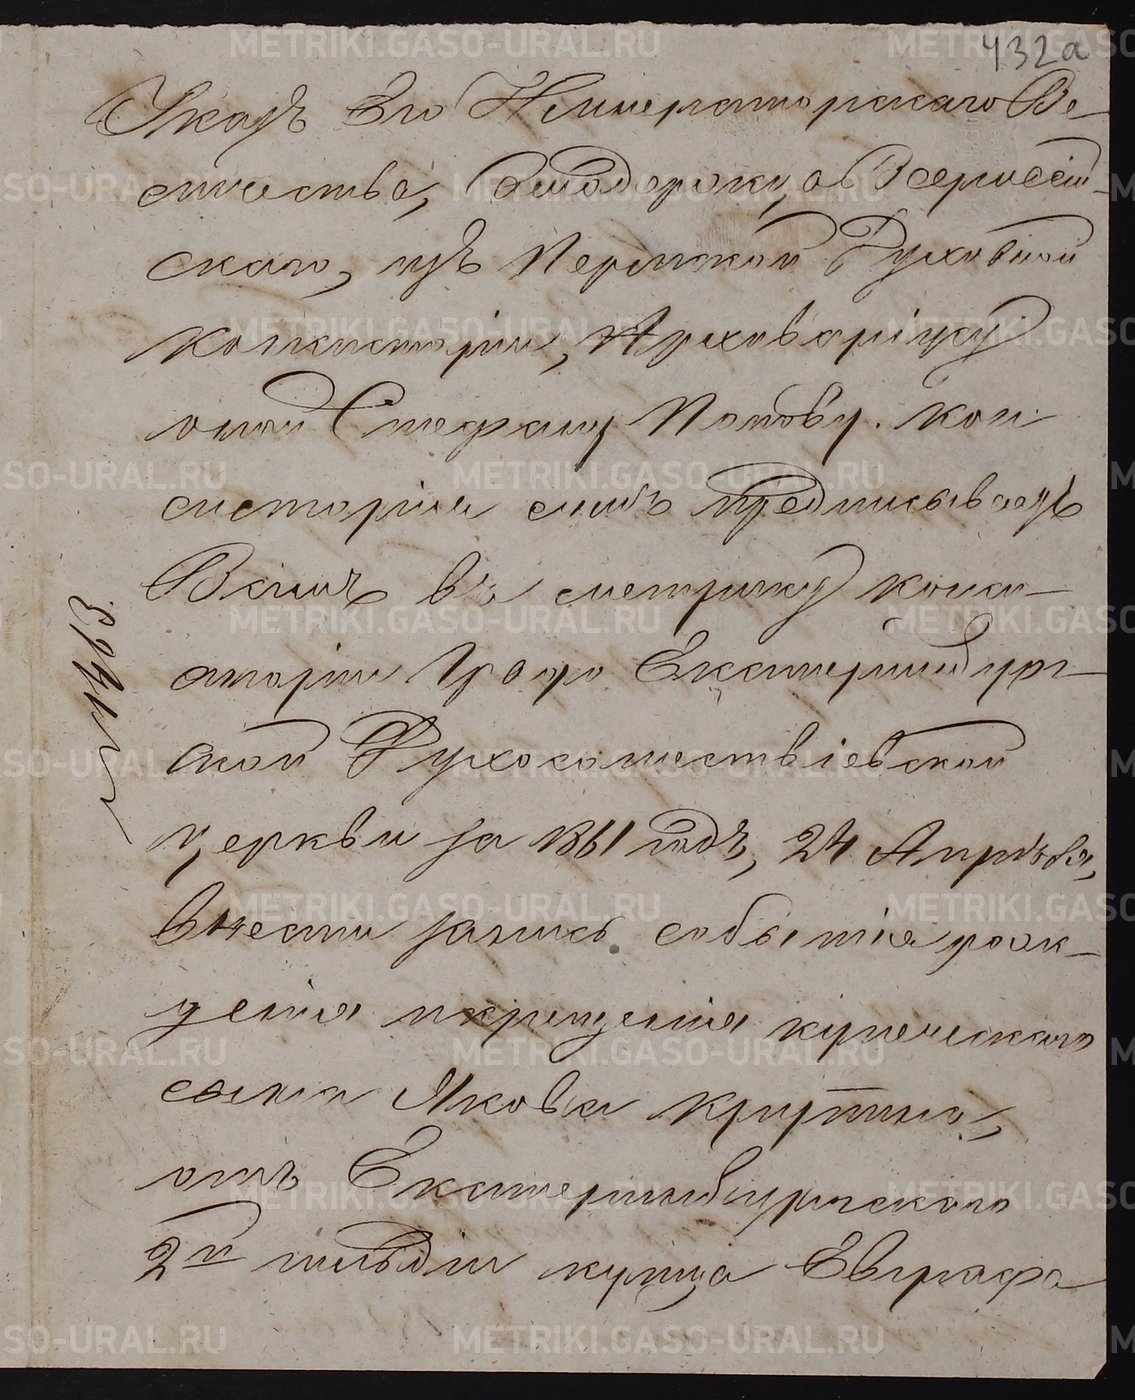 432а
Указъ Его Императорскаго Ве-
личества, Самодержца Всероссій-
скаго, изъ Пермской Духовной
Консисторіи, Архиваріусу
оной Стефану Попову. Кон
систорія симъ предписываетъ
Вамъ въ метрику конси-
сторіи Градо Екатеринбург-
ской Духосошествіевской
церкви за 1861 годъ, 24 Апрѣля,
внести запись событія рож-
денія и крещенія купеческаго
сына Якова
отъ Екатеринбургскаго
2й гильдіи купца Евграфа
METRIKI.GASO-URAL.RU